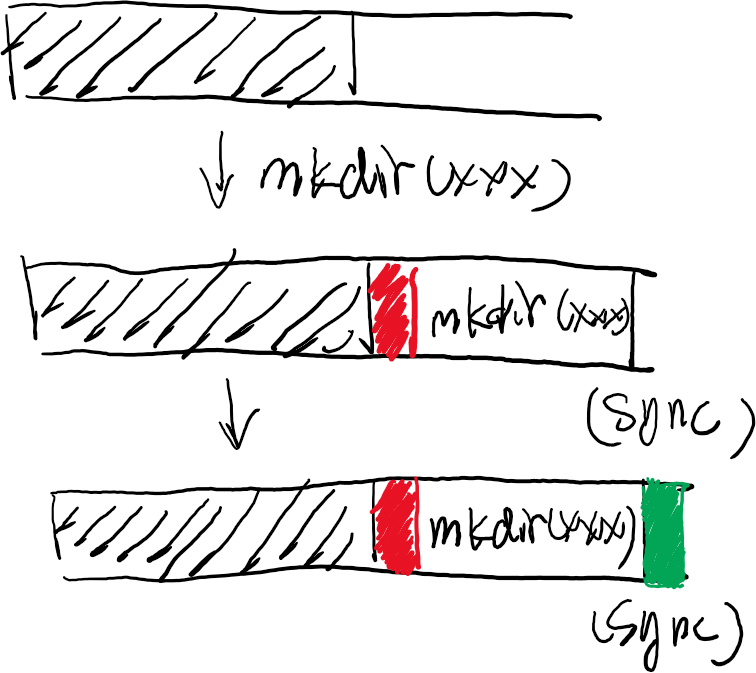 mkdir(xxx)
mkdir(xxx)
(sync)
mkdir(xxx)
(sync)